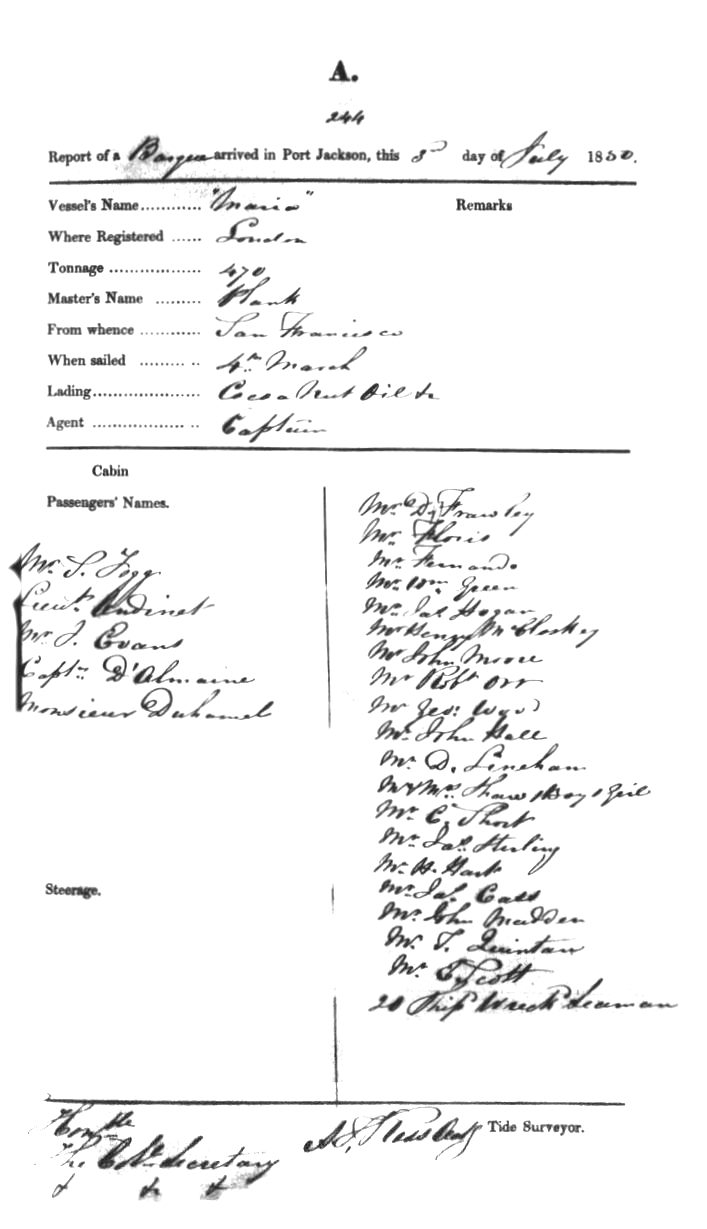 A.
244
Report of a Barque arrived in Port Jackson, this 3rd day of July 1850.
Vessel's Name ............ "Maria"
Remarks
Where Registered ...... London
Tonnage .................. 470
Master's Name ......... Plank
From whence ............ San Francisco
When sailed ......... .. 4th March
Lading....................... Cocoa Nut Oil &c
Agent .................. .. Captain
Cabin
Passengers' Names.
Mr. S. Fogg
Lieut.
Mr. J. Evans
Captn. D'Almaine
Monsieur Duhamel
Steerage.
Mr. D. Frawley
Mr. Floris
Mr. Fernando
Mr. Wm. Green
Mr. Jas. Hogan
Mr Henry McCloskey
Mr John Moore
Mr Robt. Orr
Mr Geo. Wood
Mr. John Hall
Mr. D. Linehan
Mr & Mrs. Shaw 1 Boy 1 Girl
Mr. C. Short
Mr. Jas. Sterling
Mr. H. Hart
Mr. Jas. Cass
Mr. John Madden
Mr. T. Quintan
Mr Scott
20 Ship Wreck Seaman
Honble
The Col. Secretary
&c &c &c
Tide Surveyor.